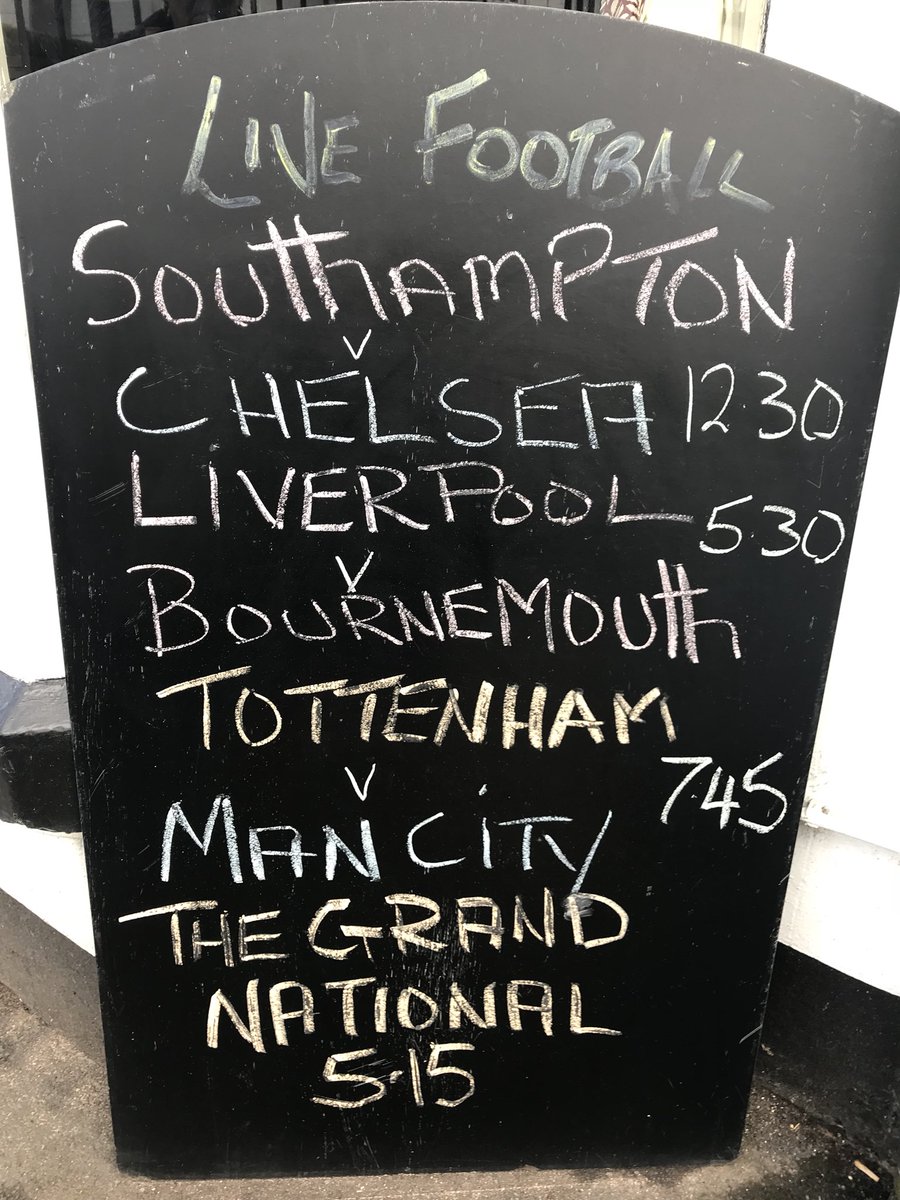 LIVE FOOTBALL
SOUTHAMPTON
V
CHELSEA 12.30
LIVERPOOL 5.30
V
BOURNEMOUTH
TOTTENHAM
V 7.45
MAN CITY
THE GRAND
NATIONAL
5.15